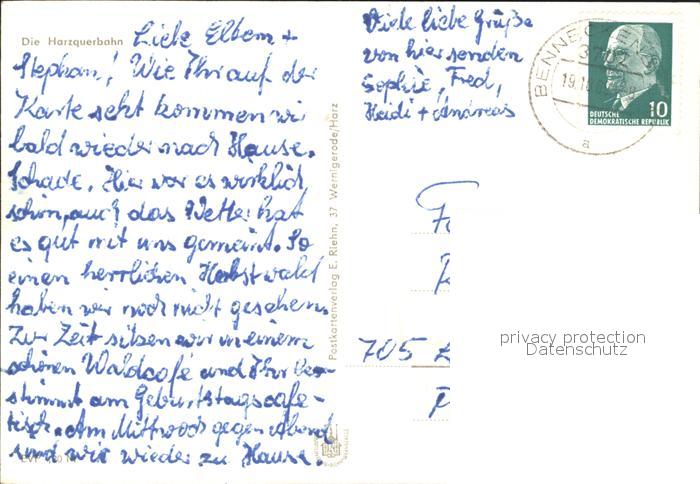 Die Harzquerbahn
Liebe Eltern +
Stephan! Wie Ihr auf der
Karte seht kommen wir
bald wieder nach Hause.
Schade. Hier war es wirklich
schön, auch das Wetter hat
es gut mit uns gemeint. So
einen herrlichen Herbstwald
haben wir noch nicht gesehen.
Zur Zeit sitzen wir in einem
schönen Waldcafé und Ihr be-
stimmt am Geburtstagscafe-
tisch. Am Mittwoch gegen Abend
sind wir wieder zu Hause.
Viele liebe Grüße
von hier senden
Sophie, Fred,
Heidi + Andreas
Postkartenverlag E. Riehn, 37 Wernigerode/Harz
3702
19.10
a
10
DEUTSCHE
DEMOKRATISCHE REPUBLIK
705
privacy protection
Datenschutz